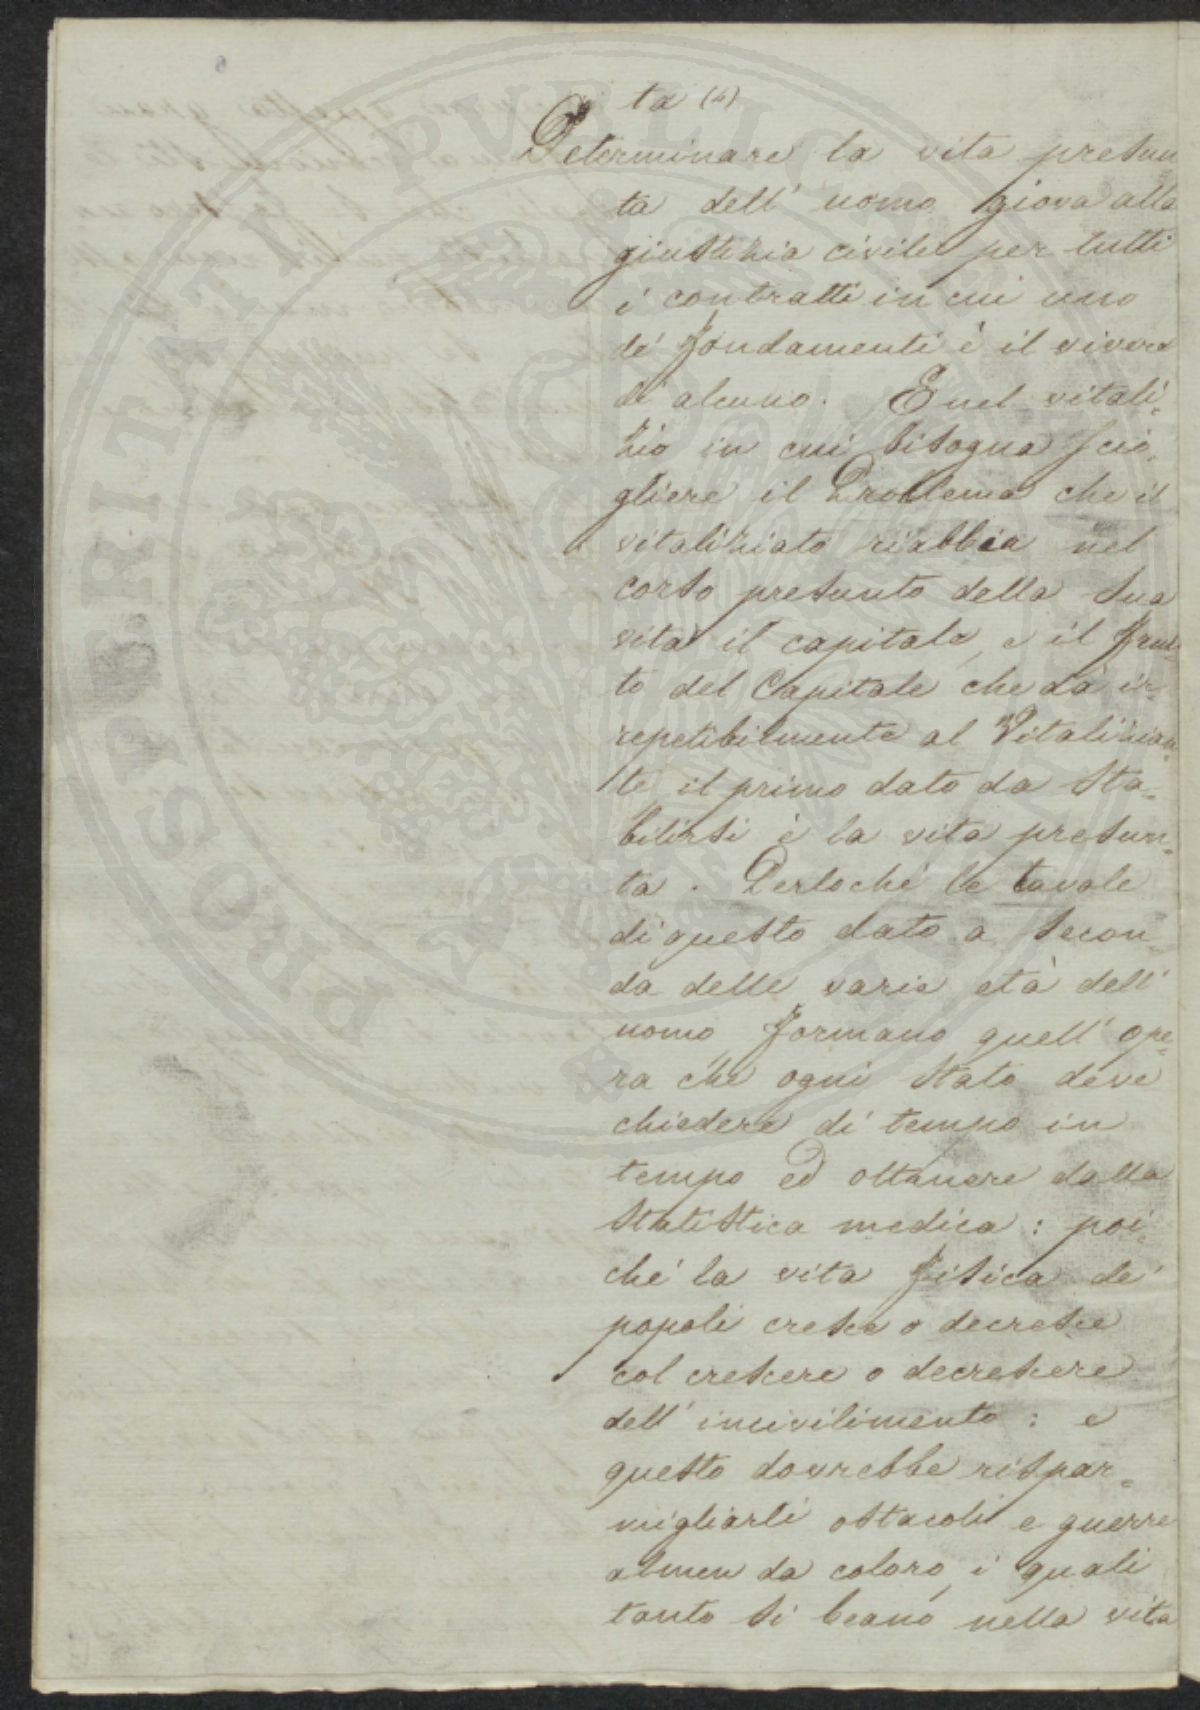 ta (4)
Determinare la vita presun
ta dell' uomo giova alla
giustizia civile per tutti
i contratti in cui uno
de' fondamenti è il vivere
di alcuno. E nel vitali=
zio in cui bisogna scio=
gliere il Problema che il
vitaliziato riabbia nel
corso presunto della sua
vita il capitale, e il frut=
to del Capitale che dà ir=
repetibilmente al Vitalizian
te il primo dato da sta=
bilirsi è la vita presun=
ta. Perloché le tavole
di questo dato a secon
da delle varie età dell'
uomo formano quell' ope=
ra che ogni stato deve
chiedere di tempo in
tempo ed ottenere dalla
statistica medica: poi=
ché la vita fisica de'
popoli cresce o decresce
col crescere o decrescere
dell' incivilimento: e
questo dovrebbe rispar=
migliarli ostacoli e guerre
almen da coloro, i quali
tanto si beano nella vita
PROSPERITATI PVBLICAE